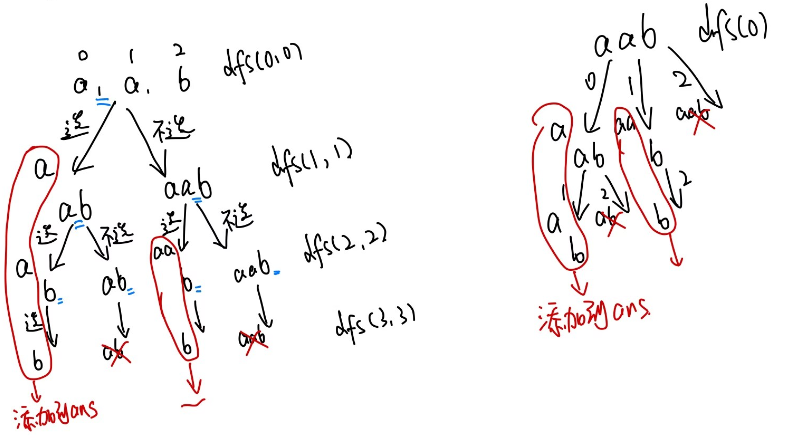 0 1 2
a, a, b
dfs(0,0)
选 不选
a
ab
aab
dfs(1,1)
选 不选
选 不选
a
b
ab
aa
b
aab
dfs(2,2)
选
b
ab
b
aab
dfs(3,3)
添加到ans
aab
dfs(0)
0 1 2
a
ab
aa
b
aab
1 2 2
a
b
ab
b
添加到ans.